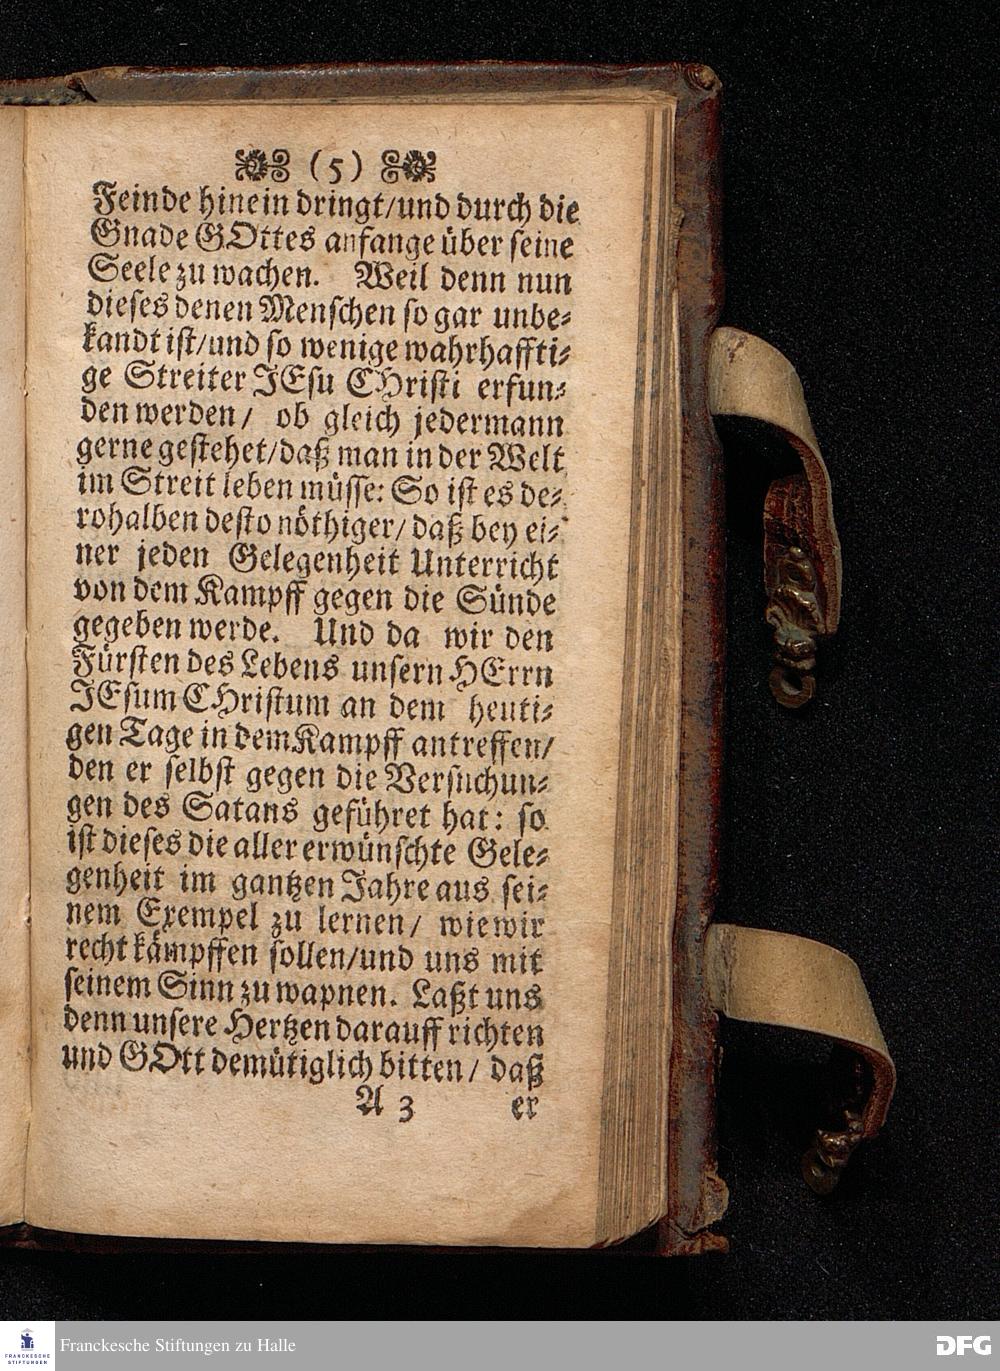 (5)
Feinde hinein dringt/und durch die
Gnade GOttes anfange über seine
Seele zu wachen. Weil denn nun
dieses denen Menschen so gar unbe-
kandt ist/und so wenige wahrhaffti-
ge Streiter JEsu CHristi erfun-
den werden/ ob gleich jedermann
gerne gestehet/daß man in der Welt
im Streit leben müsse: So ist es de-
rohalben desto nöthiger/ daß bey ei-
ner jeden Gelegenheit Unterricht
von dem Kampff gegen die Sünde
gegeben werde. Und da wir den
Fürsten des Lebens unsern HErrn
JEsum CHristum an dem heuti-
gen Tage in dem Kampff antreffen/
den er selbst gegen die Versuchun-
gen des Satans geführet hat: so
ist dieses die aller erwünschte Gele-
genheit im gantzen Jahre aus sei-
nem Exempel zu lernen/ wie wir
recht kämpffen sollen/und uns mit
seinem Sinn zu wapnen. Laßt uns
denn unsere Hertzen darauff richten
und GOtt demütiglich bitten/ daß
A 3 er
FRANCKESCHE STIFTUNGEN
Franckesche Stiftungen zu Halle
DFG